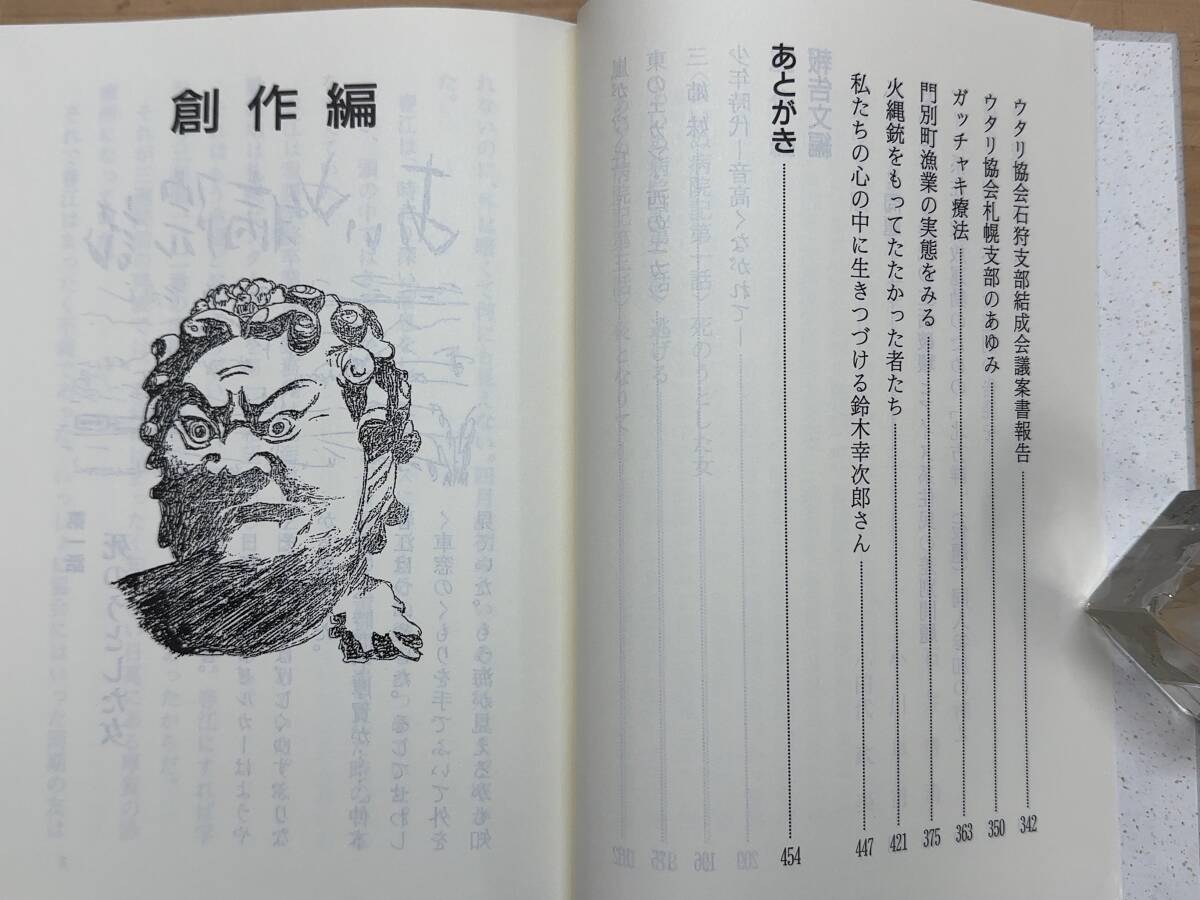 ウタリ協会石狩支部結成会議案書報告……342
ウタリ協会札幌支部のあゆみ……350
ガッチャキ療法……363
門別町漁業の実態をみる……375
火縄銃をもってたたかった者たち……421
私たちの心の中に生きつづける鈴木幸次郎さん……447
あとがき……454
創作編